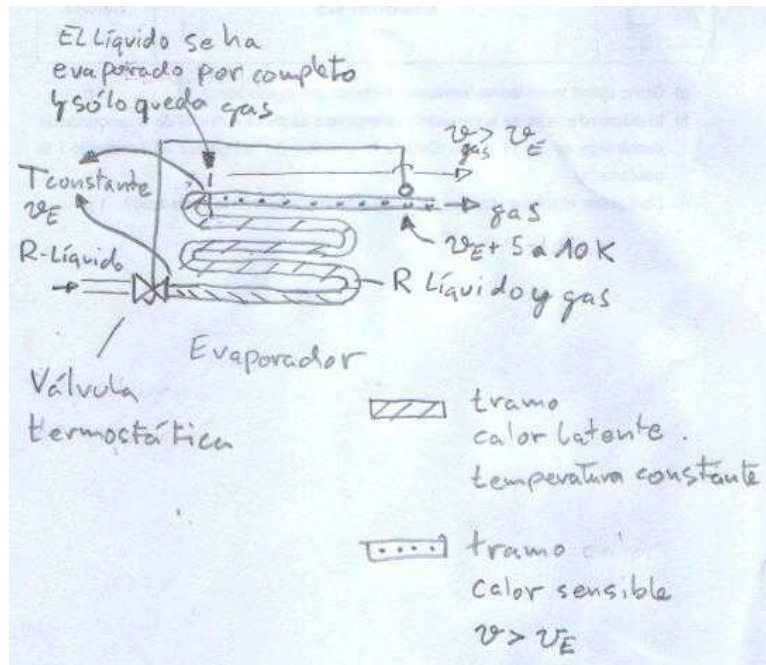 EL Líquido se ha
evaporado por completo
y sólo queda gas
T constante
𝜗E
R-Líquido
𝜗gas > 𝜗E
gas
𝜗E + 5 a 10 K
R Líquido y gas
Evaporador
Válvula
termostática
tramo
calor latente.
temperatura constante
tramo
calor sensible
𝜗 > 𝜗E